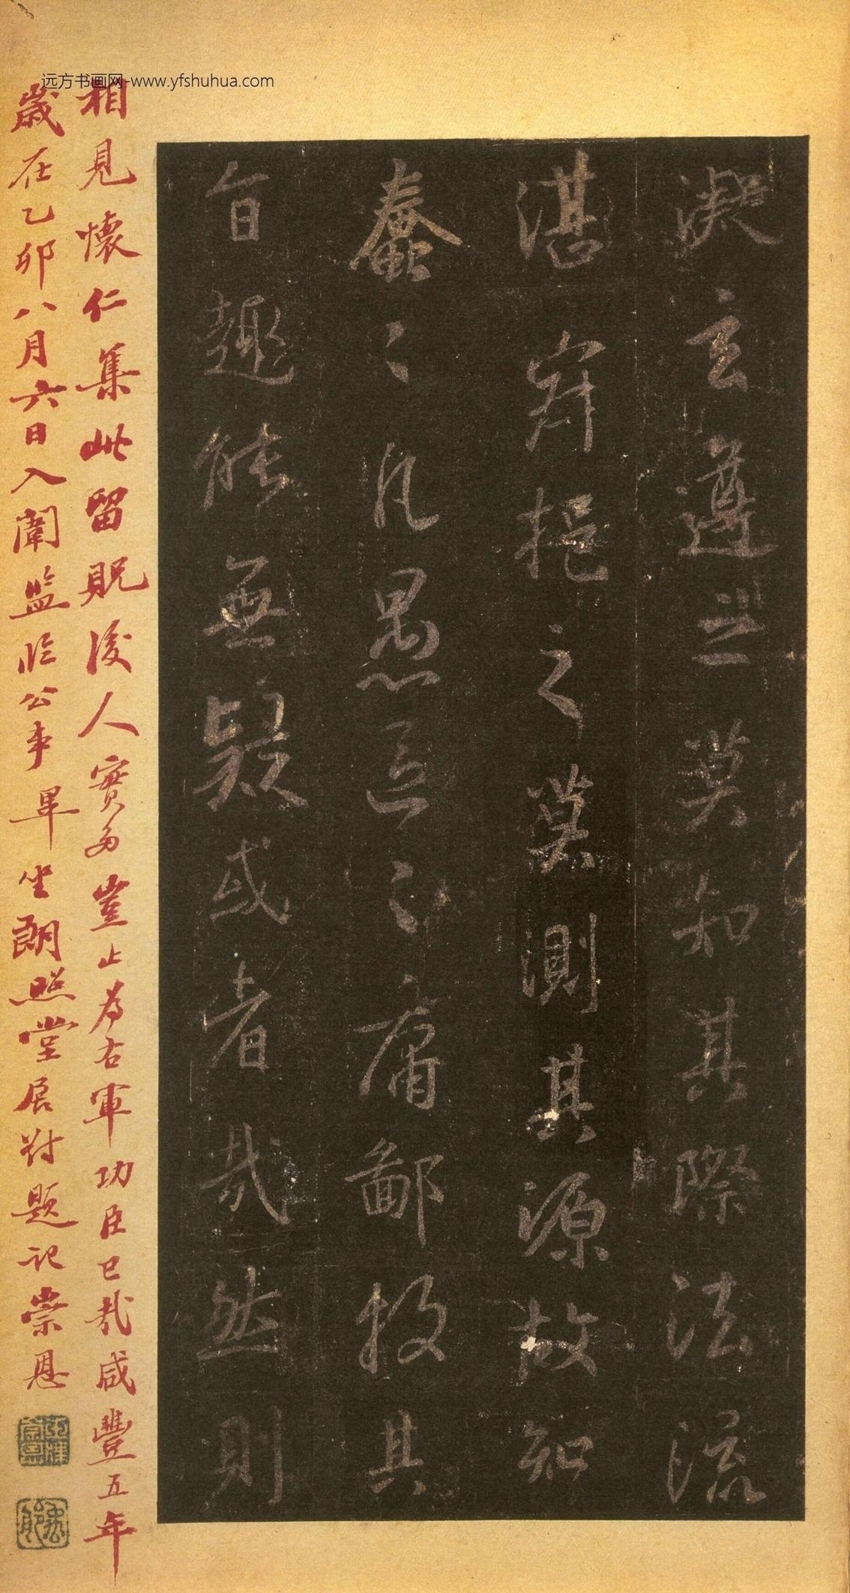 远方书画网-www.yfshuhua.com
凝玄遵之莫知其際法流
湛寂挹之莫測其源故知
蠢蠢凡愚區區庸鄙投其
旨趣能無疑或者哉然則
相見懷仁集此留貺後人實多豈止為右軍功臣已哉咸豐五年
歲在乙卯八月六日入闈監臨公事畢坐朗照堂展對題記崇恩